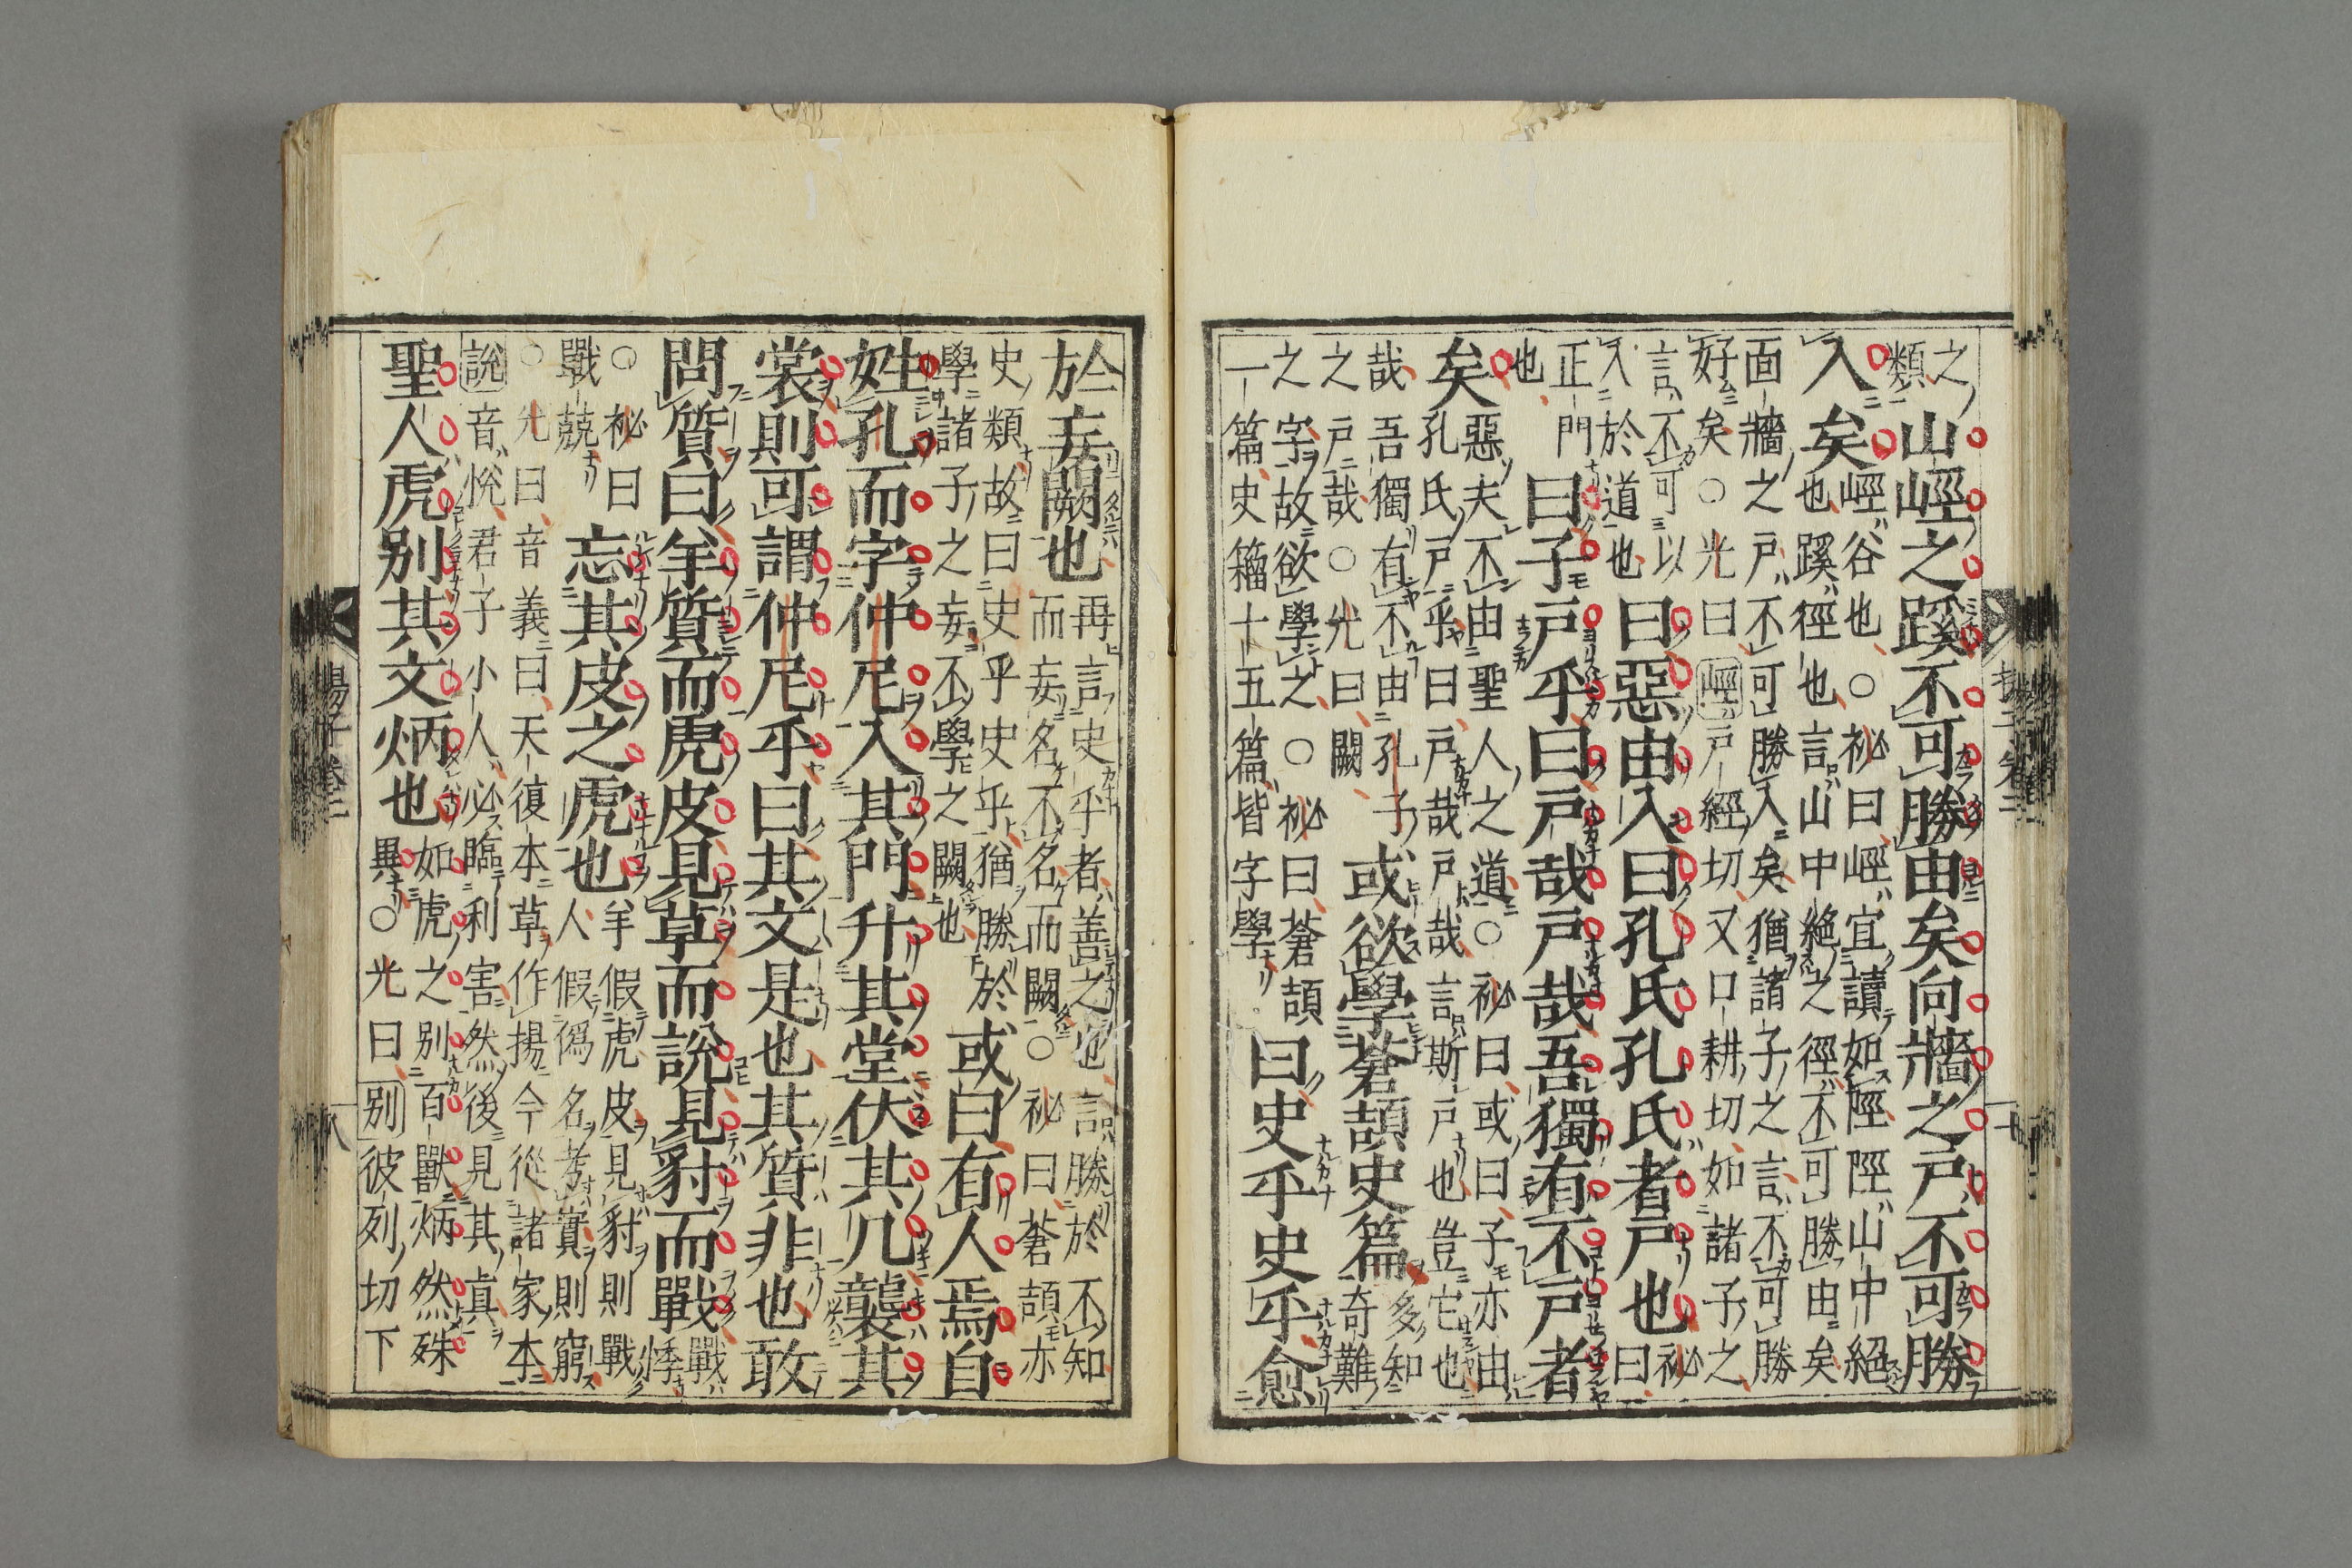 之
類
山𡷨之蹊不可勝由矣向牆之戶不可勝
入矣
𡷨谷也○祕曰𡷨宜讀如陘陘山中絕
也蹊徑也言山中絕之徑不可勝由矣
面牆之戶不可勝入矣猶諸子之言不可勝
好矣○光曰𡷨戶經切又口耕切如諸子之
言不可以
入於道也
曰惡由入曰孔氏孔氏者戶也
祕
曰
正門
也
曰子戶乎曰戶哉戶哉吾獨有不戶者
矣
惡夫不由聖人之道○祕曰或曰子亦由
孔氏戶乎曰戶哉戶哉言斯戶也豈它也
哉吾獨有不由孔子
之戶哉○光曰闕
或欲學蒼頡史篇
多知
奇難
之字故欲學之○祕曰蒼頡
一篇史籀十五篇皆字學
曰史乎史乎愈
於妄闕也
再言史乎者善之也言勝於不知
而妄名不名而闕○祕曰蒼頡亦
史類故曰史乎史乎猶勝於
學諸子之妄不學之闕也
或曰有人焉自
姓孔而字仲尼入其門升其堂伏其几襲其
裳則可謂仲尼乎曰其文是也其質非也敢
問質曰羊質而虎皮見草而說見豺而戰
戰
悸
○祕曰
戰兢
忘其皮之虎也
羊假虎皮見豺則戰
人假偽名考實則窮
○光曰音義曰天復本草作揚今從諸家本
說音悅君子小人必臨利害然後見其真
聖人虎別其文炳也
如虎之別百獸炳然殊
異○光曰別彼列切下
揚子卷二
八